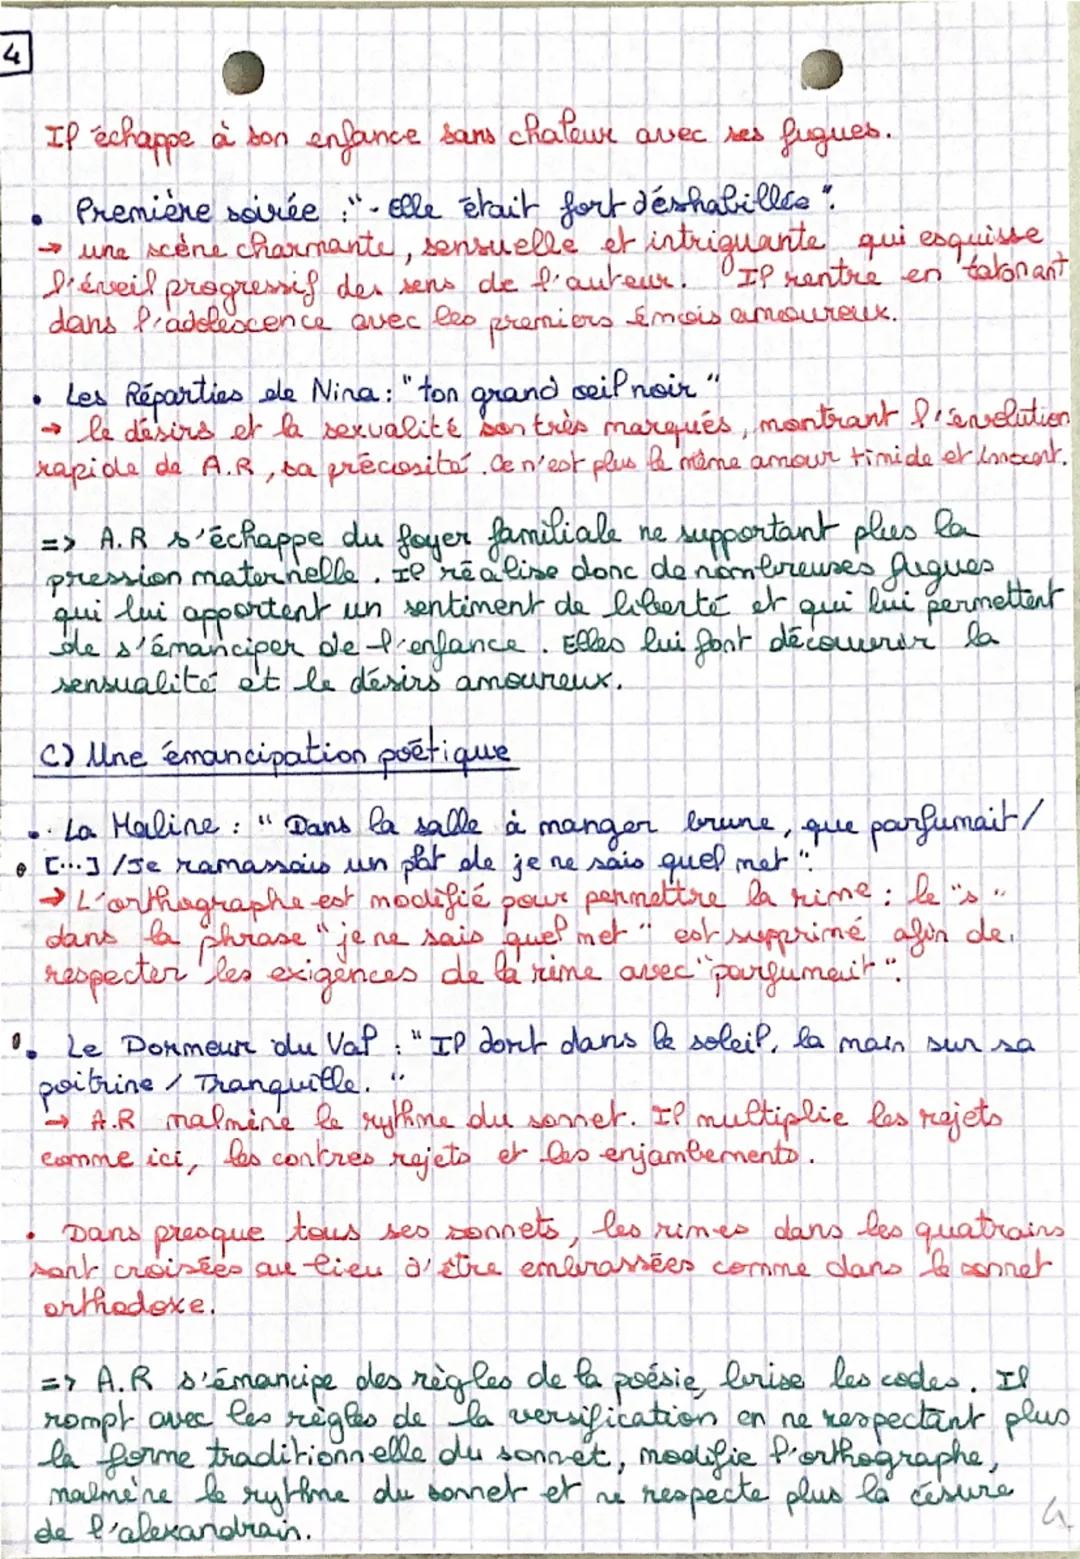 4
Il échappe à son enfance sans chaleur avec ses fugues.
• Première soirée : "- Elle était fort déshabillée".
→ une scène charmante, sensuelle et intriguante qui esquisse
l'éveil progressif des sens de l'auteur. Il rentre en tatonant
dans l'adolescence avec les premiers émois amoureux.
• Les Réparties de Nina : "ton grand oeil noir"
→ le désirs et la sexualité son très marqués, montrant l'évolution
rapide de A.R, sa précosité. Ce n'est plus le même amour timide et innocent.
=> A.R s'échappe du foyer familiale ne supportant plus la
pression maternelle. Il réalise donc de nombreuses fugues
qui lui apportent un sentiment de liberté et qui lui permettent
de s'émanciper de l'enfance. Elles lui font découvrir la
sensualité et le désirs amoureux.
C) Une émancipation poétique
• La Maline : "Dans la salle à manger brune, que parfumait /
[...] / Je ramassais un plat de je ne sais quel met".
→ L'orthographe est modifié pour permettre la rime : le "s"
dans la phrase "je ne sais quel met" est supprimé afin de
respecter les exigences de la rime avec "parfumait".
• Le Dormeur du Val : "Il dort dans le soleil, la main sur sa
poitrine / Tranquille."
→ A.R malmène le rythme du sonnet. Il multiplie les rejets
comme ici, les contres rejets et les enjambements.
• Dans presque tous ses sonnets, les rimes dans les quatrains
sont croisées au lieu d'être embrassées comme dans le sonnet
orthodoxe.
=> A.R s'émancipe des règles de la poésie, brise les codes. Il
rompt avec les règles de la versification en ne respectant plus
la forme traditionnelle du sonnet, modifie l'orthographe,
malmène le rythme du sonnet et ne respecte plus la césure
de l'alexandrain.